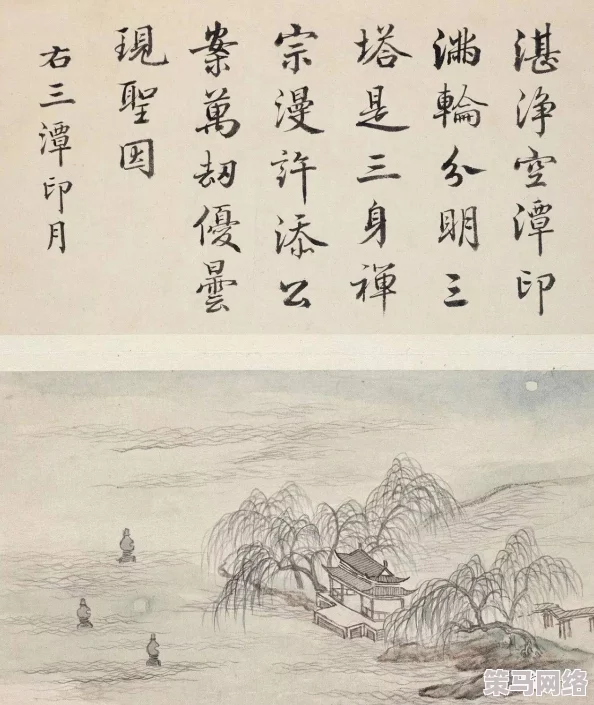 湛淨空潭印
滿輪分明三
塔是三身禪
宗漫許添公
案萬劫優曇
現聖因
右三潭印月
策马网络